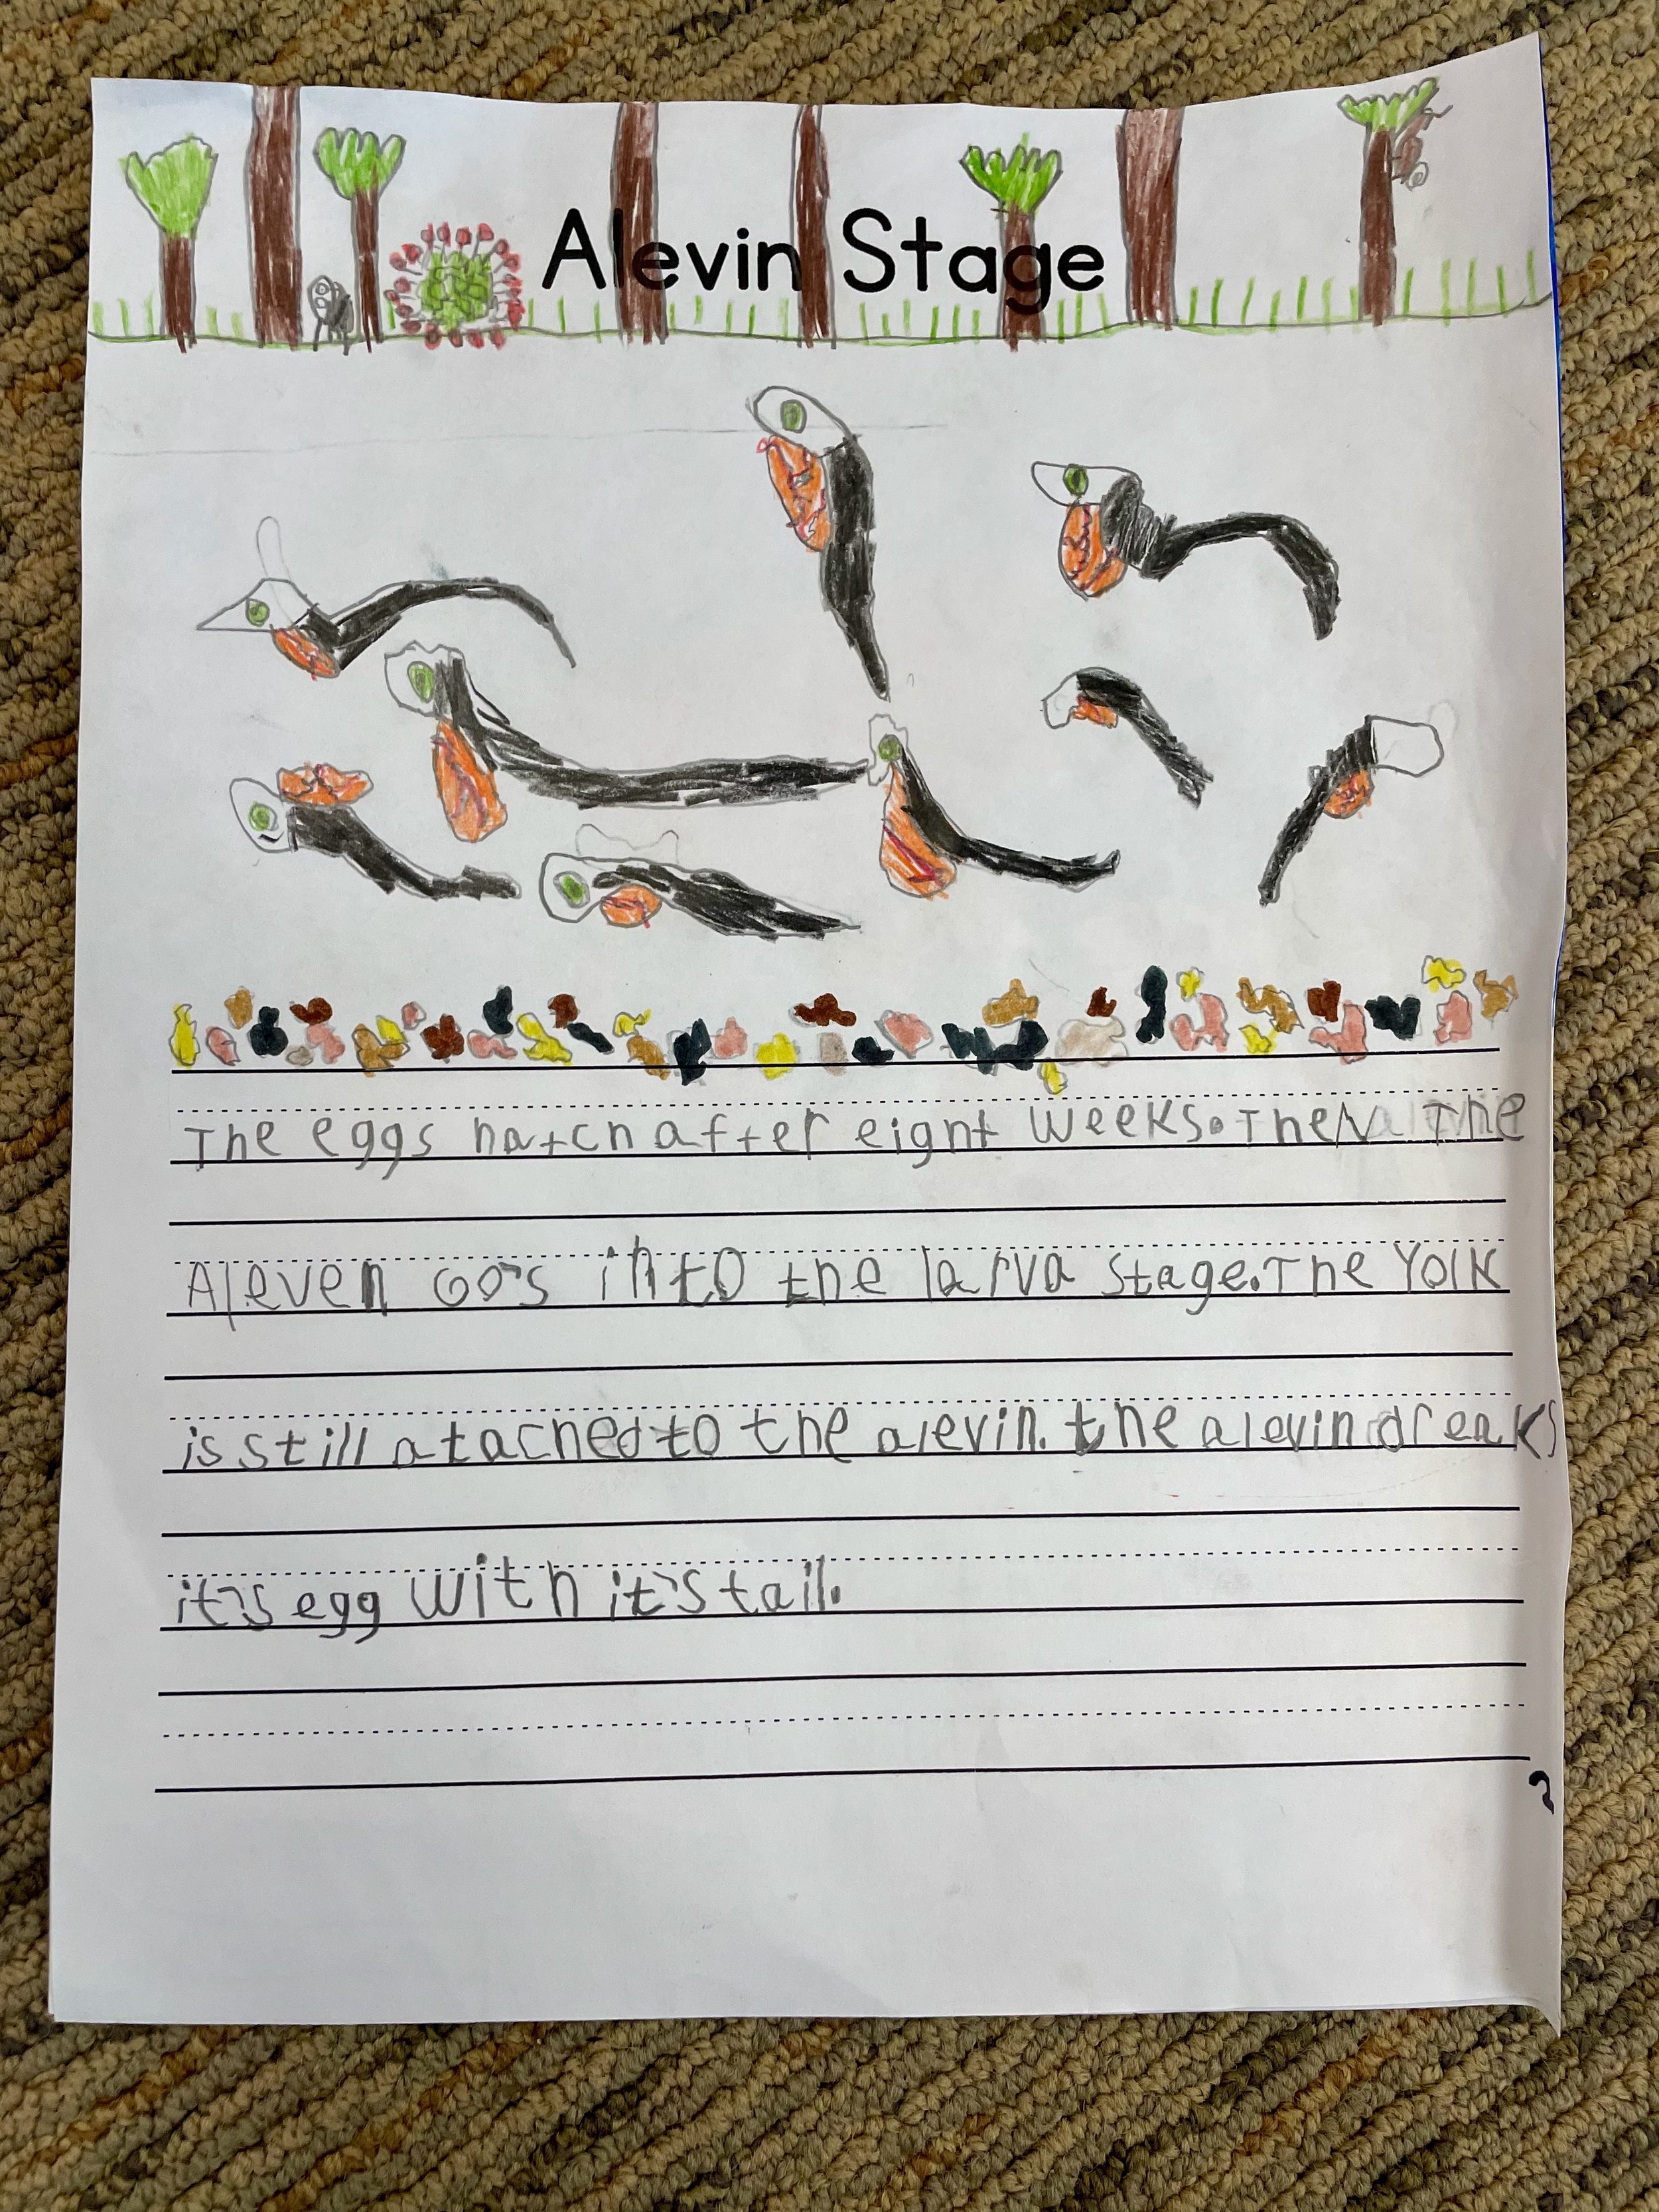 Alevin Stage
The eggs hatch after eight weeks. Then The
Aleven Go's into the larva stage. The Yolk
is still atached to the alevin. the alevin breaks
it's egg with it's tail.
2